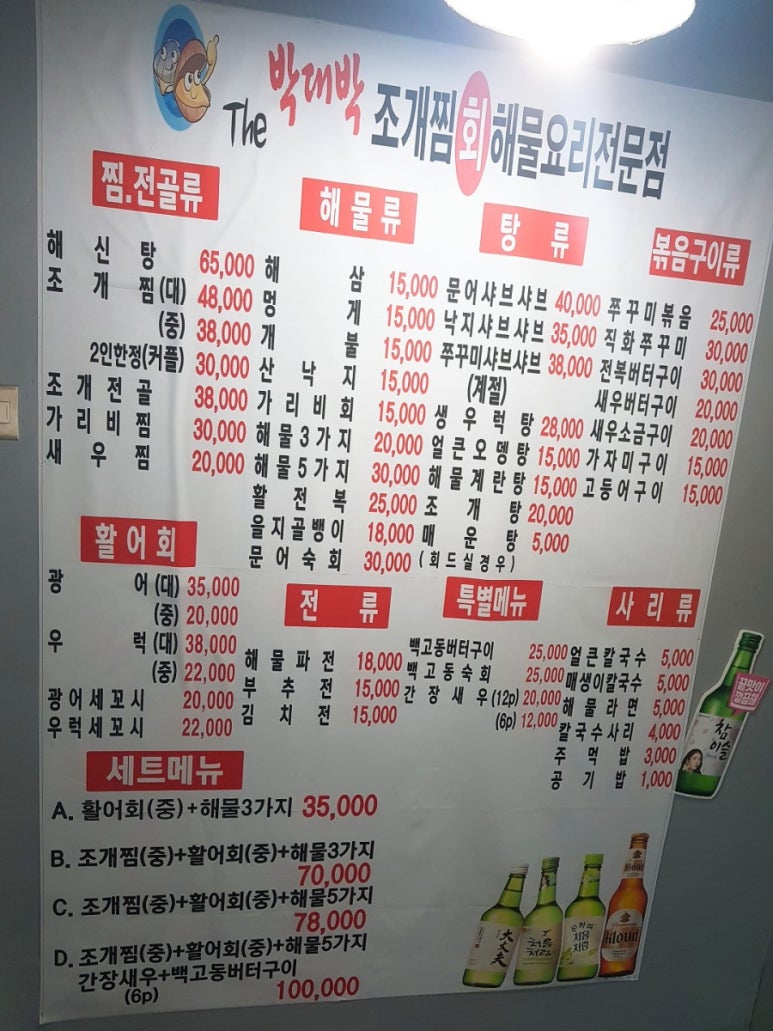 The 박대박 조개찜 회 해물요리전문점
찜.전골류
해신탕 65,000
조개찜(대) 48,000
(중) 38,000
2인한정(커플) 30,000
조개전골 38,000
가리비찜 30,000
새우찜 20,000
해물류
해삼 15,000
멍게 15,000
개불 15,000
산낙지 15,000
가리비회 15,000
해물3가지 20,000
해물5가지 30,000
활전복 25,000
을지골뱅이 18,000
문어숙회 30,000
탕류
문어샤브샤브 40,000
낙지샤브샤브 35,000
쭈꾸미샤브샤브 38,000
(계절)
생우럭탕 28,000
얼큰오뎅탕 15,000
해물계란탕 15,000
조개탕 20,000
매운탕 5,000
(회드실경우)
볶음구이류
쭈꾸미볶음 25,000
직화쭈꾸미 30,000
전복버터구이 30,000
새우버터구이 20,000
새우소금구이 20,000
가자미구이 15,000
고등어구이 15,000
활어회
광어(대) 35,000
(중) 20,000
우럭(대) 38,000
(중) 22,000
광어세꼬시 20,000
우럭세꼬시 22,000
전류
해물파전 18,000
부추전 15,000
김치전 15,000
특별메뉴
백고동버터구이 25,000
백고동숙회 25,000
간장새우(12p) 20,000
(6p) 12,000
사리류
얼큰칼국수 5,000
매생이칼국수 5,000
해물라면 5,000
칼국수사리 4,000
주먹밥 3,000
공기밥 1,000
세트메뉴
A. 활어회(중)+해물3가지 35,000
B. 조개찜(중)+활어회(중)+해물3가지
70,000
C. 조개찜(중)+활어회(중)+해물5가지
78,000
D. 조개찜(중)+활어회(중)+해물5가지
간장새우+백고동버터구이
(6p) 100,000
끝맛이
깔끔해
참
이슬
大丈夫
처음
처럼
순하리
처음
처럼
kloud